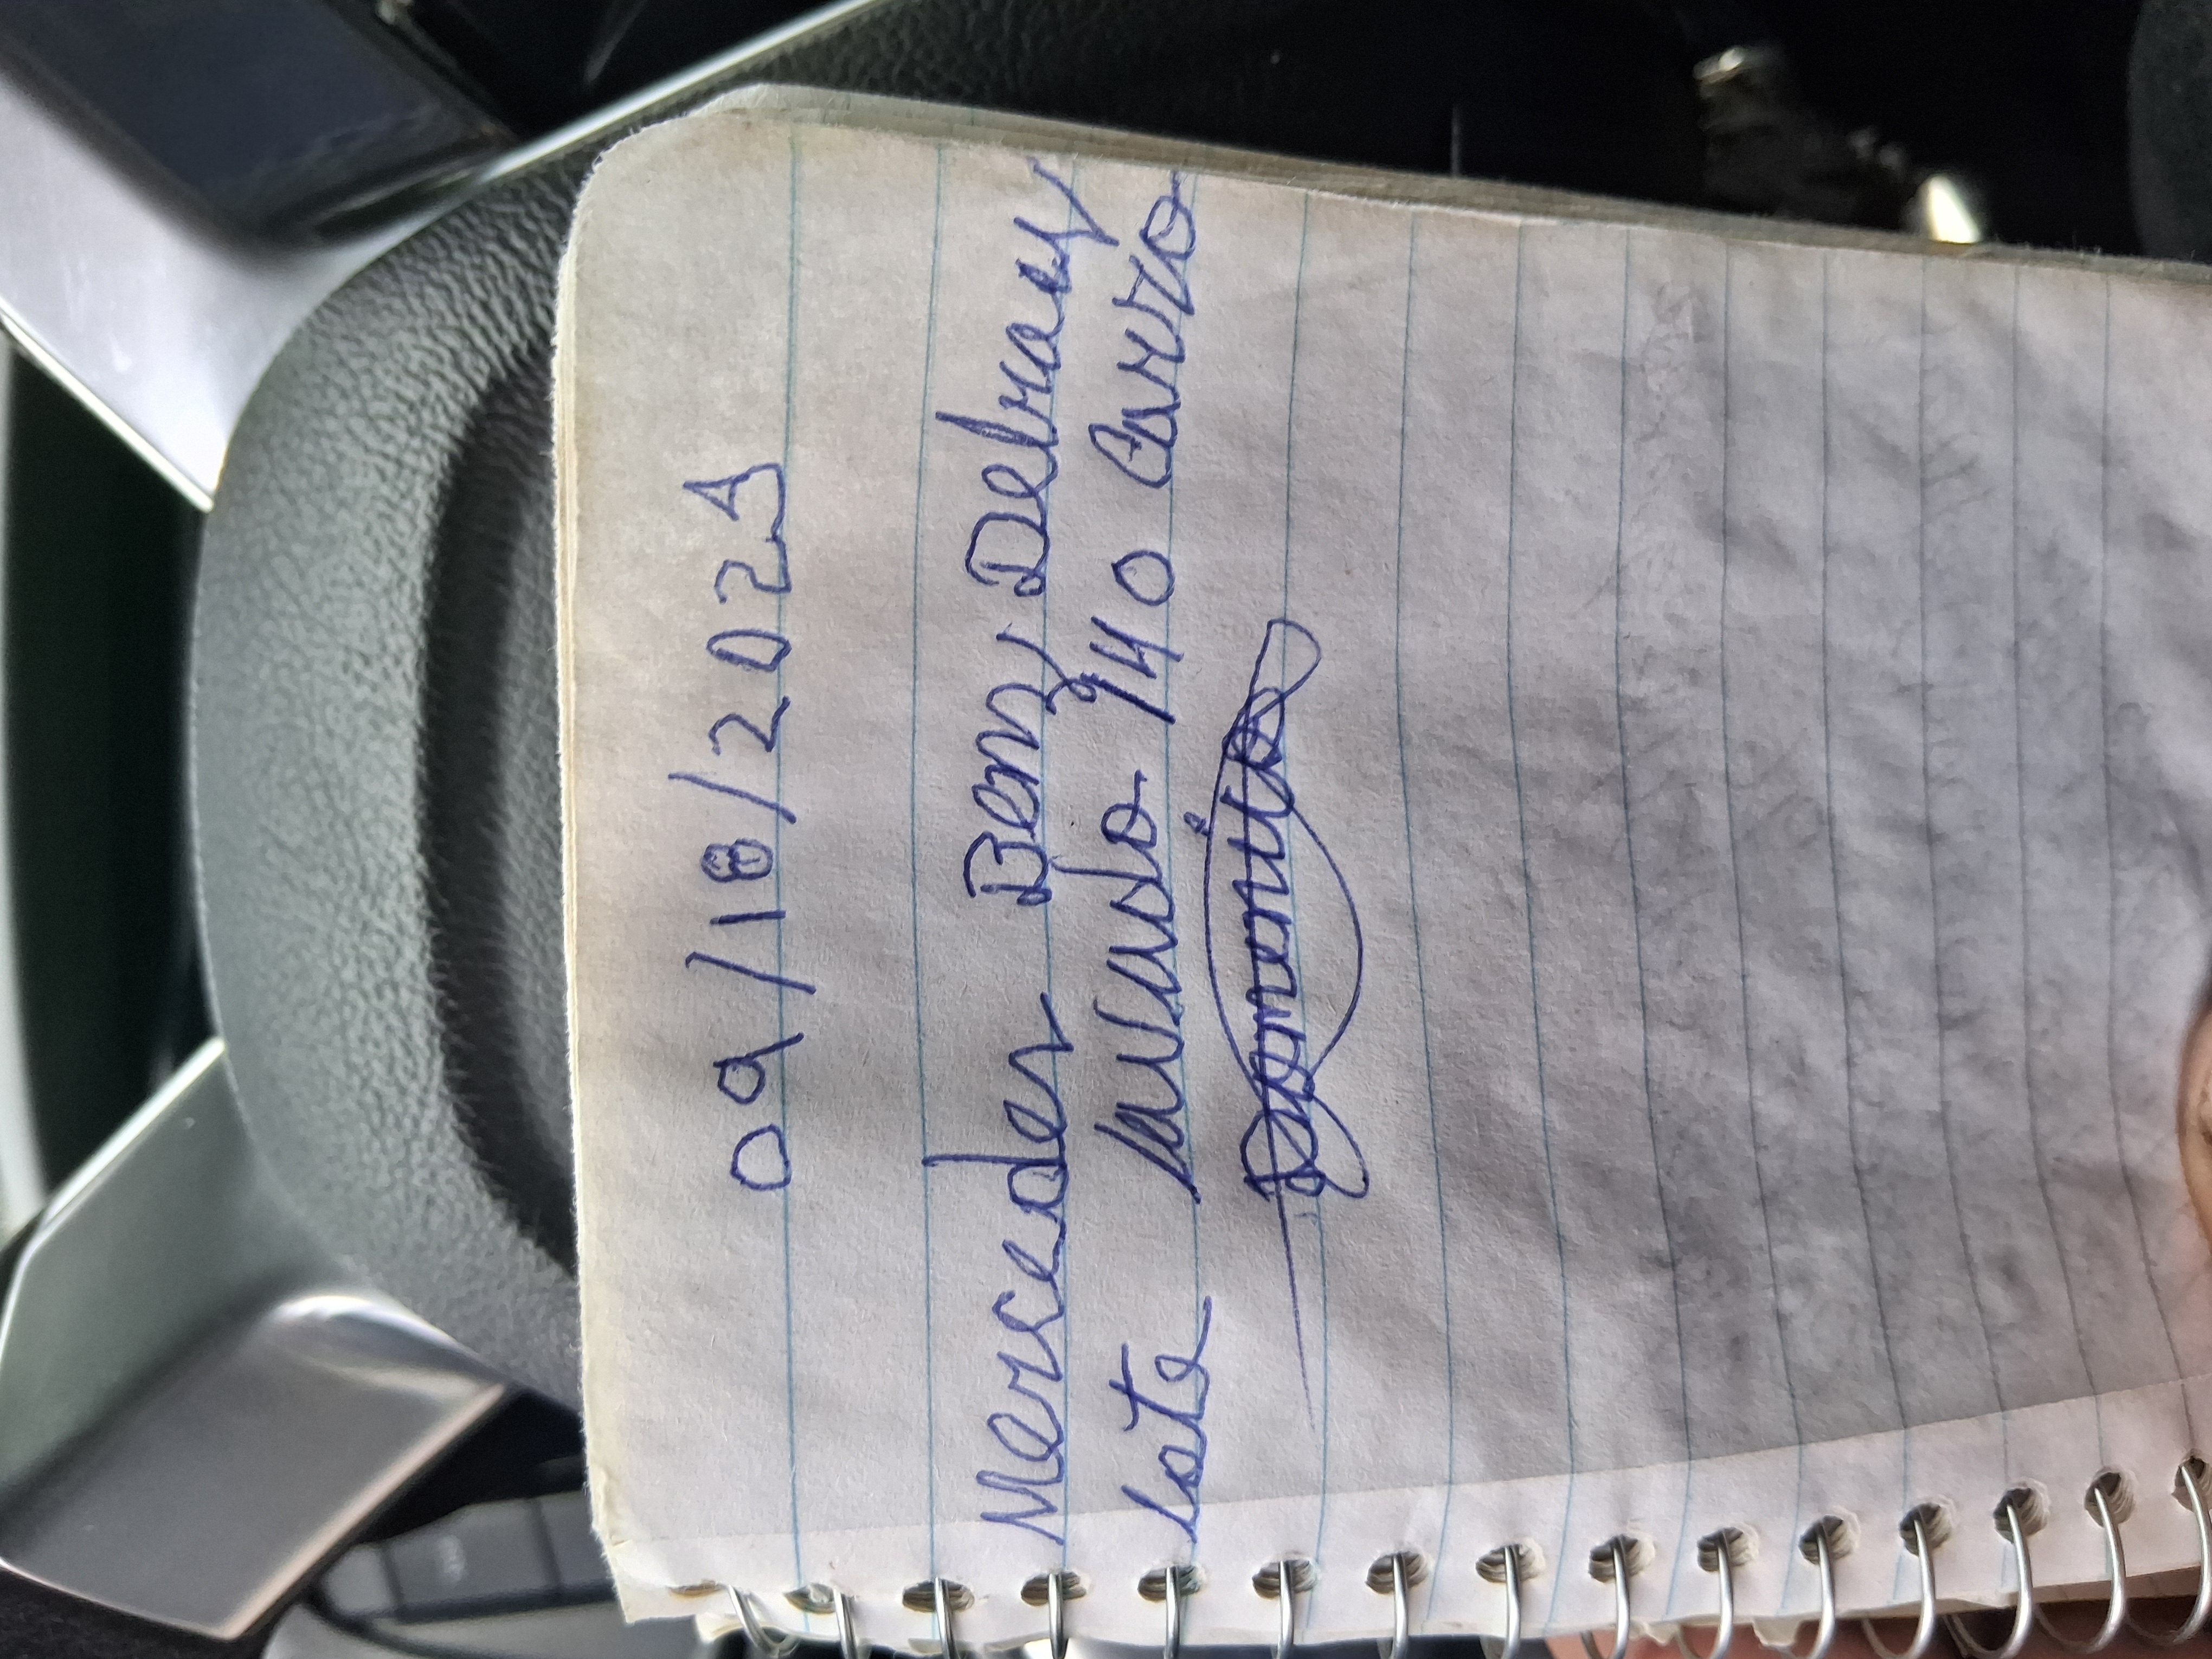 09/18/2025
Mercedes Benz Delray
Lote lavado 140 Carro